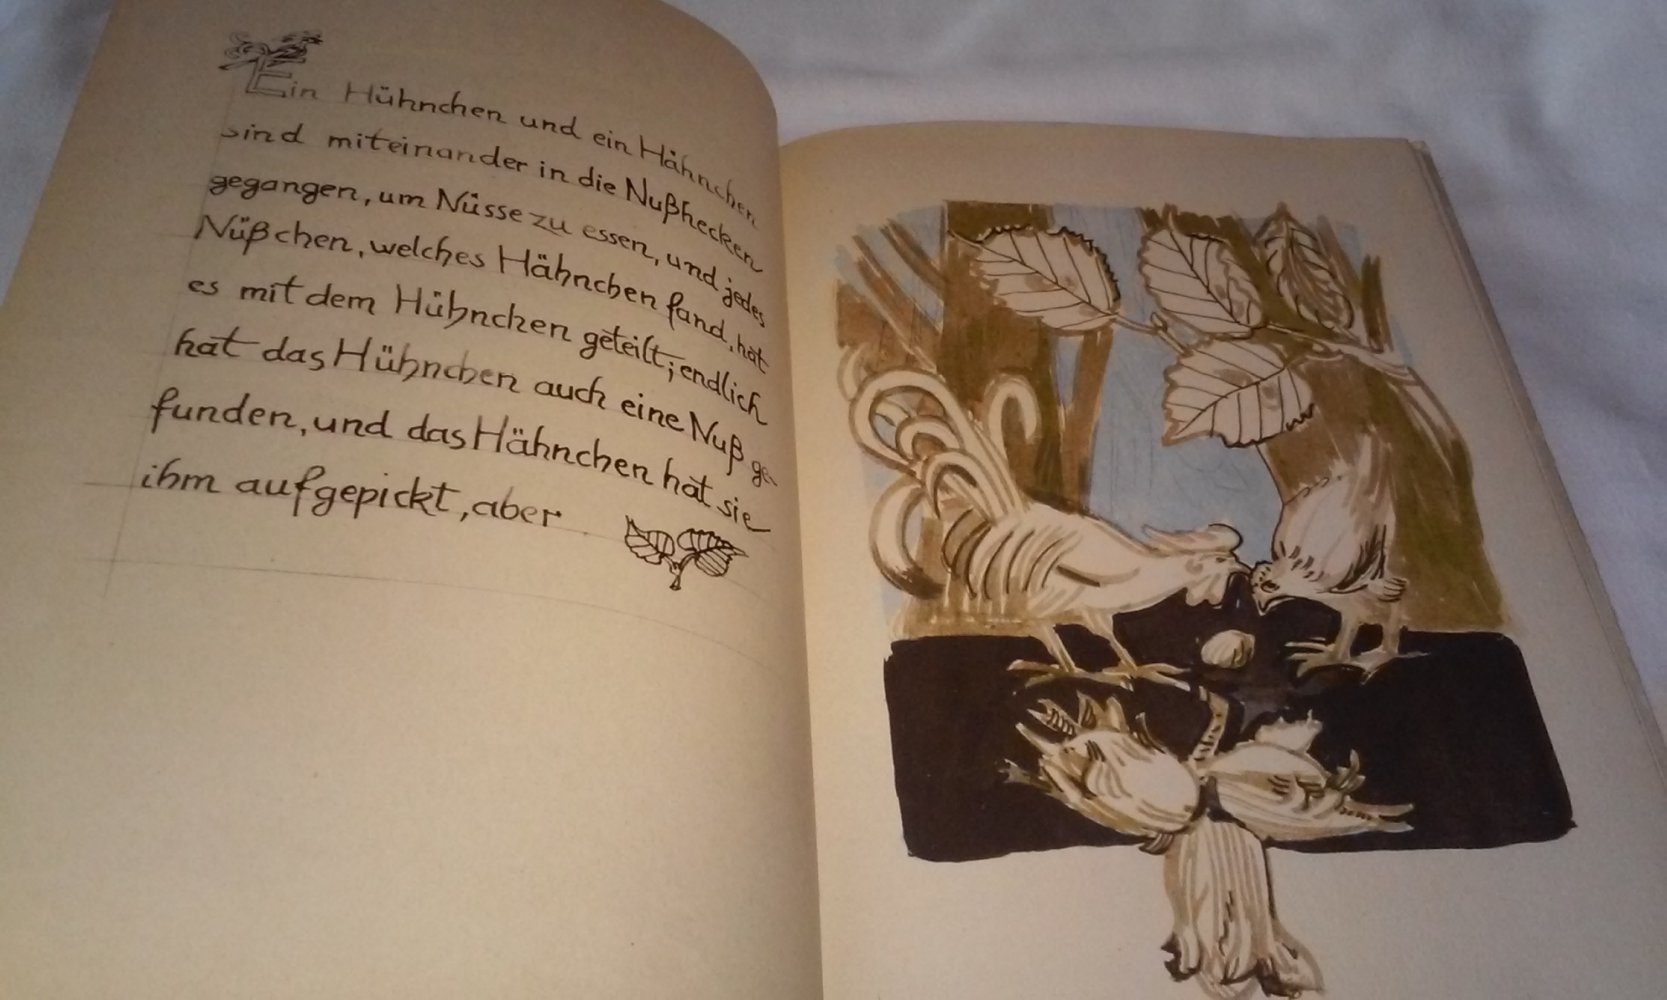 Ein Hühnchen und ein Hähnchen
sind miteinander in die Nußhecken
gegangen, um Nüsse zu essen, und jedes
Nüßchen, welches Hähnchen fand, hat
es mit dem Hühnchen geteilt; endlich
hat das Hühnchen auch eine Nuß ge-
funden, und das Hähnchen hat sie
ihm aufgepickt, aber